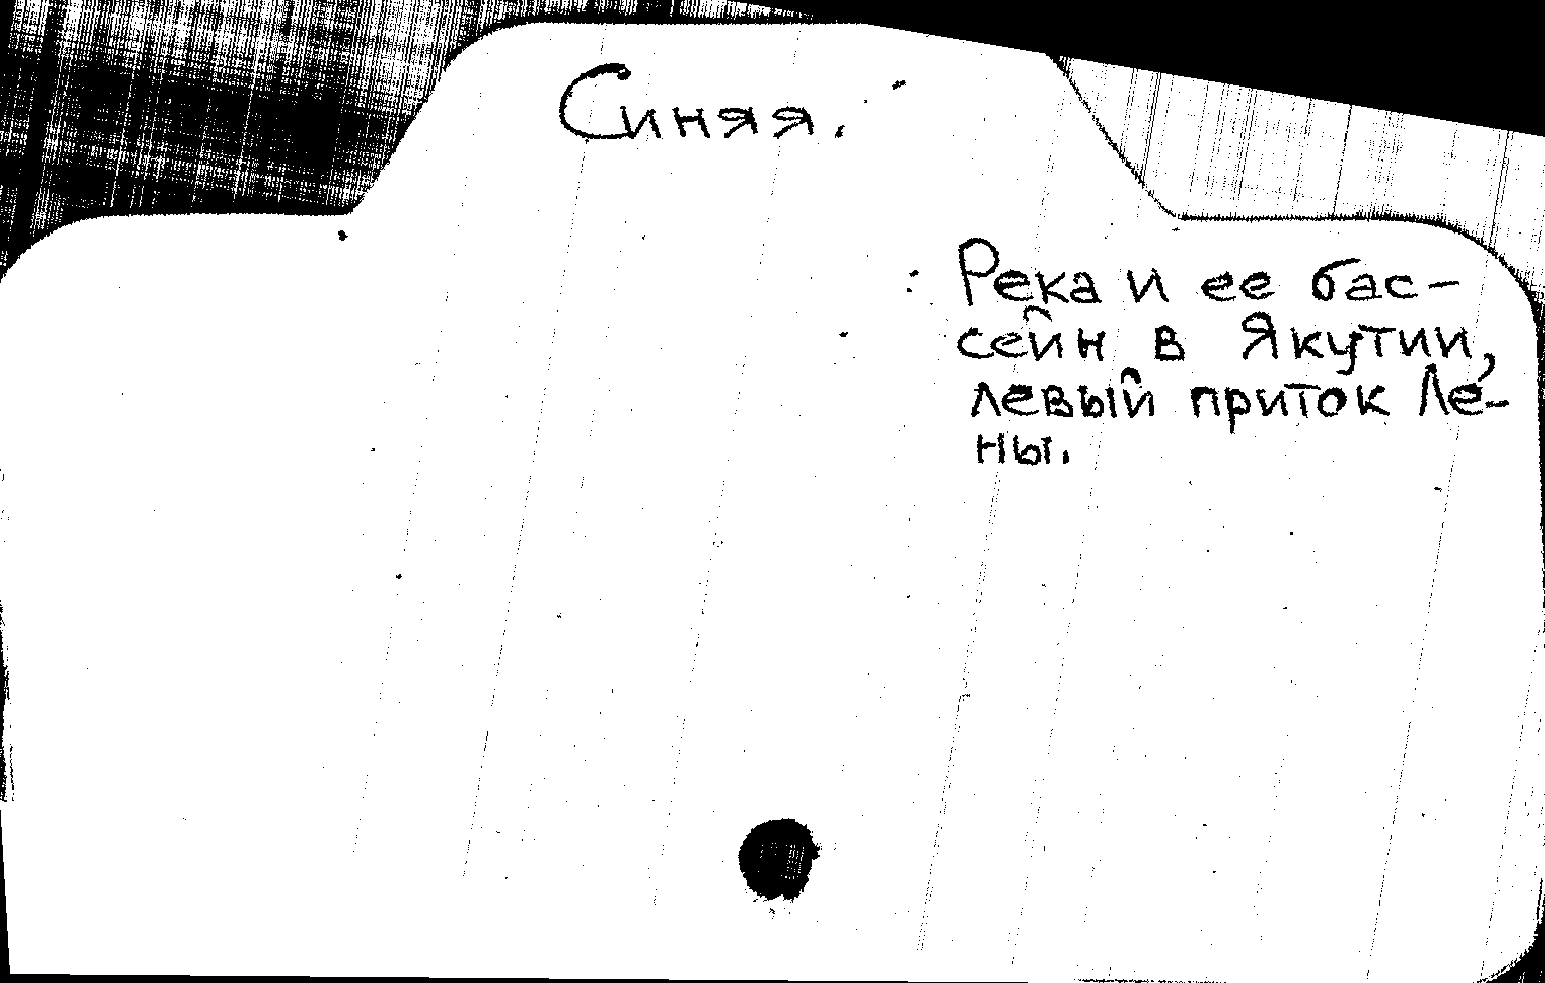 Синяя.
Река и ее бас-
сейн в Якутии,
левый приток Ле-
ны.